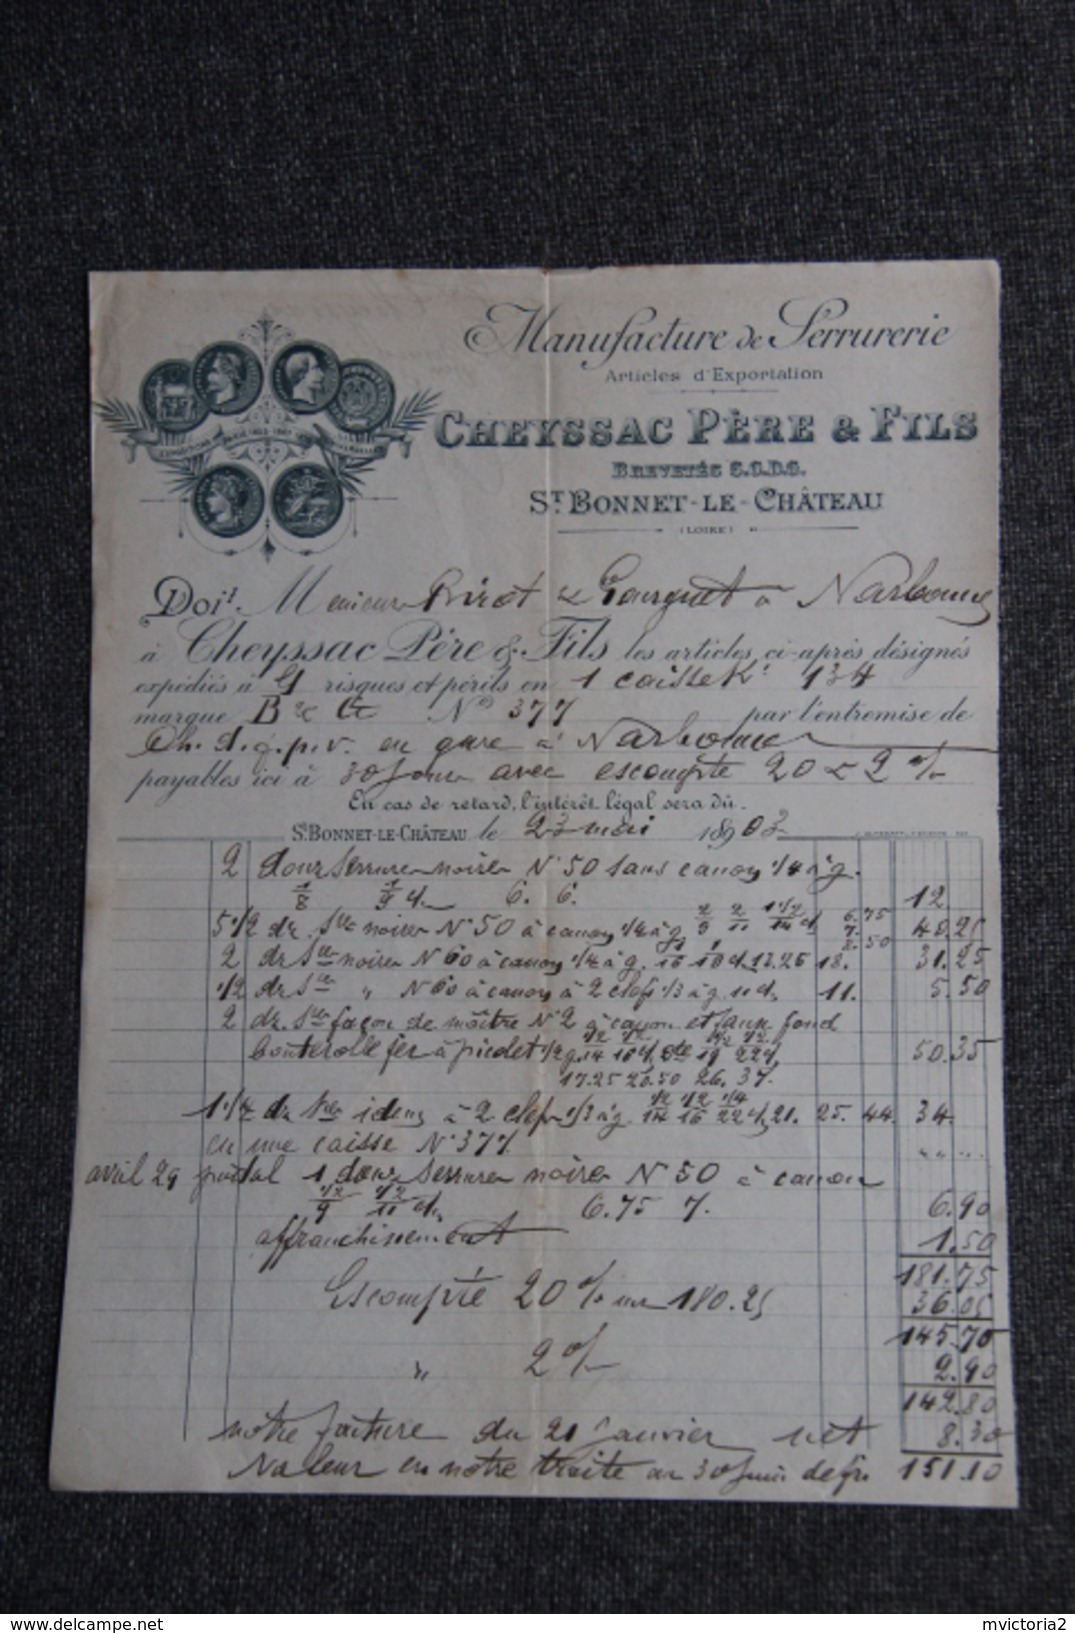 Manufacture de Serrurerie
Articles d'Exportation
CHEYSSAC PÈRE & FILS
BREVETÉS S.G.D.G.
ST BONNET-LE-CHÂTEAU
(LOIRE)
Doit Messieurs Birot & Gourguet à Narbonne
à Cheyssac Père & Fils les articles ci-après désignés
expédiés à risques et périls en 1 caisse Ks 134
marque B & G No 377 par l'entremise de
Ch. d. g. p. v. en gare à Narbonne
payables ici à 30 jours avec escompte 20 & 2 %
En cas de retard, l'intérêt légal sera dû.
ST BONNET-LE-CHÂTEAU le 23 mai 1903
2 douz serrures noires N° 50 sans canon 1/4 à g.
1/8 1/9 d. 6. 6. 12
5 1/2 dz. Sres noires N° 50 à canon 1/2 à g. 2/9 2/11 1 1/2/14 d. 6.75 7. 8.50 40.25
2 dz Sres noires N 60 à canon 1/4 à g. 1/16 1/18 d. 13.25 18. 31.25
1/2 dz Sres " N 60 à canon à 2 clefs 1/3 à g. 11 d. 11. 5.50
2 dz. Sres façon de maître N° 2 à canon et faux fond
bouterolle fer à piedet 1/2 g. 50.35
17.25 20.50 26. 37.
1 1/4 dz Sres idem à 2 clefs 1/3 à g. 1/2/14 1/2/16 1/4/22 d. 21. 25. 44 34.
en une caisse N° 377
avril 29 postal 1 douz serrures noires N° 50 à canon
1/2/9 1/2/11 d. 6.75 7. 6.90
affranchissement 1.50
181.75
Escompte 20 % sur 180.25 36.05
145.70
" 2 % 2.90
142.80
notre facture du 21 Janvier net 8.30
Valeur en notre traite au 30 Juin de frs 151.10
mvictoria2